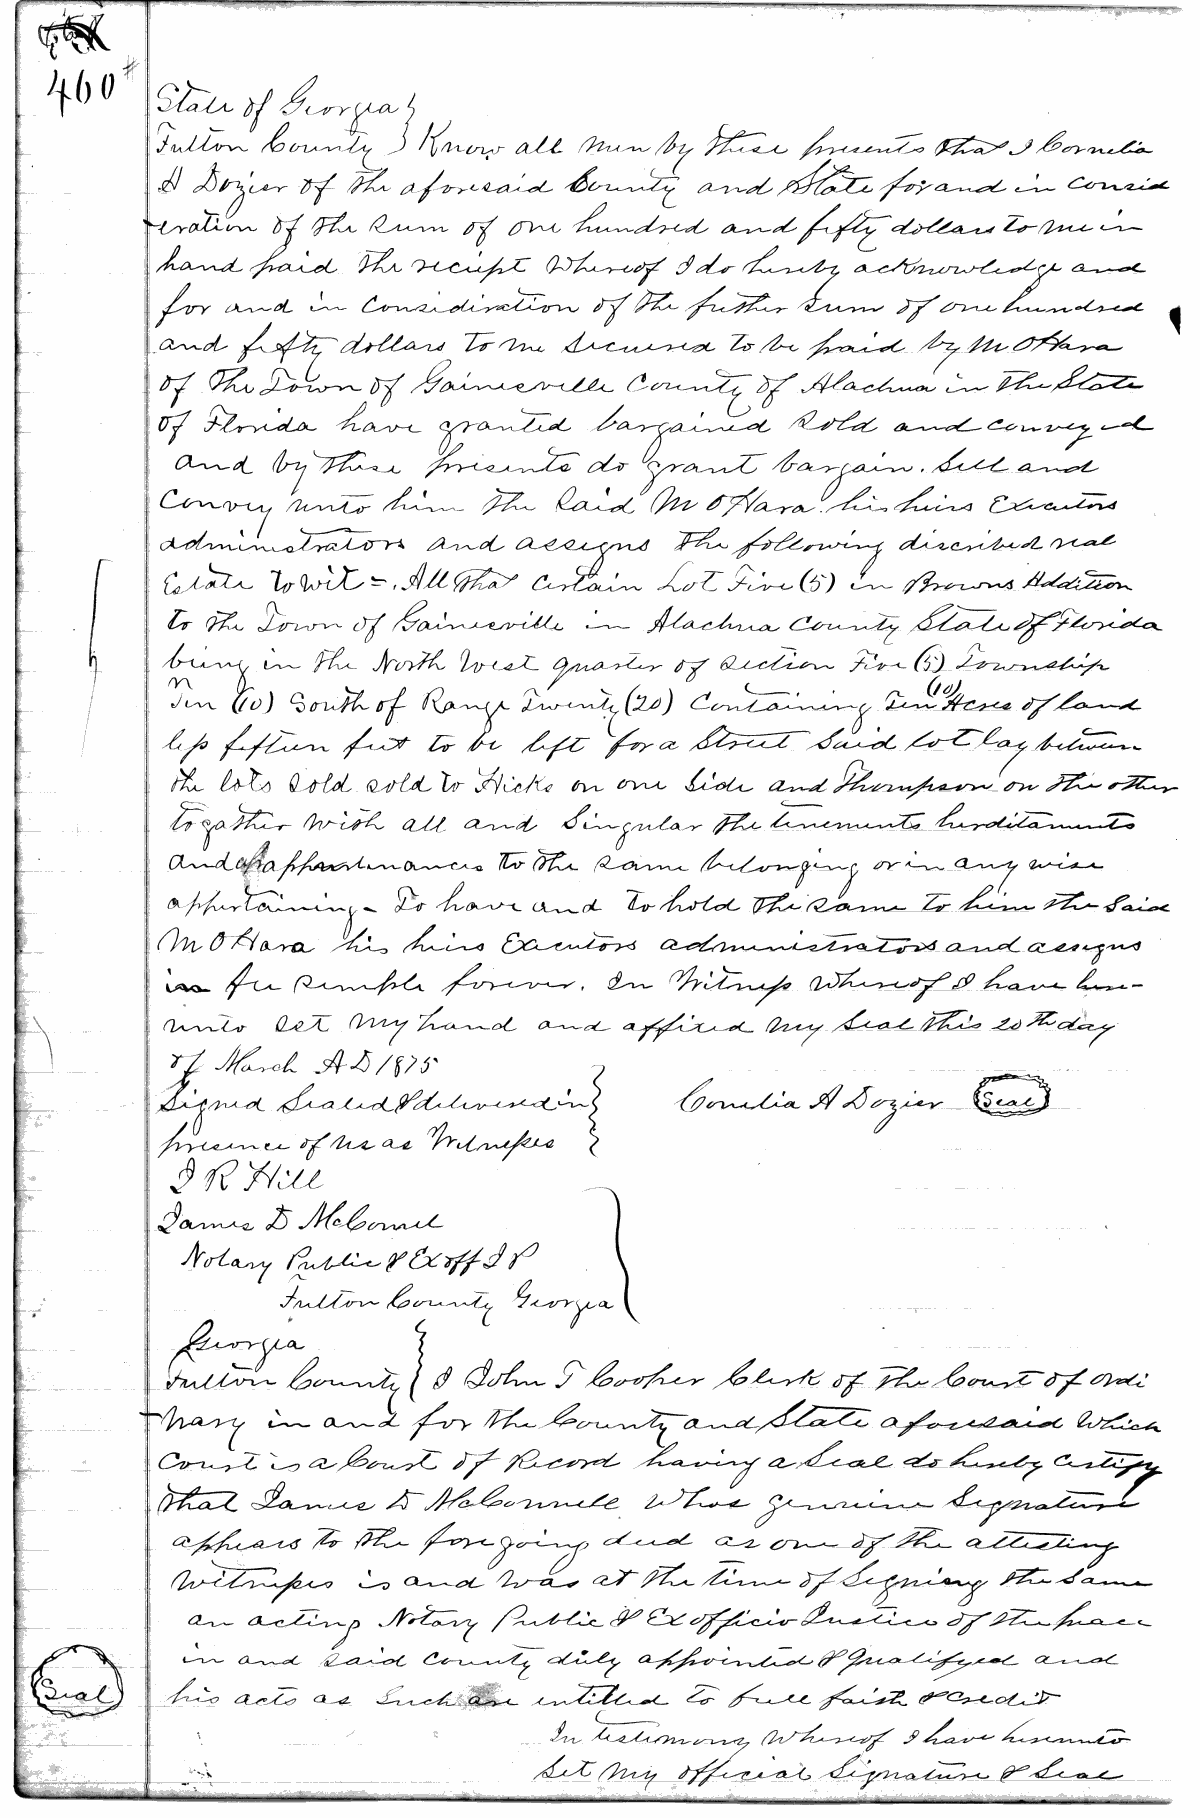 460
State of Georgia }
Fulton County } Know all men by these presents that I Cornelia
A Dozier of the aforesaid County and State for and in consid
eration of the sum of one hundred and fifty dollars to me in
hand paid the reciept whereof I do hereby acknowledge and
for and in consideration of the futher sum of one hundred
and fifty dollars to me secured to be paid by M OHara
of the Town of Gainesville County of Alachua in the State
of Florida have granted bargained sold and conveyed
and by these presents do grant bargain. sell and
convey unto him the said M OHara his heirs Executors
administrators and assigns the following discribed real
Estate to wit =. All that certain Lot Five (5) in Browns Addition
to the Town of Gainesville in Alachua County State of Florida
being in the North West quarter of section Five (5) Township
Ten (10) South of Range Twenty (20) Containing Ten (10) Acres of land
less fifteen feet to be left for a Street said lot lay between
the lots sold sold to Hicks on one side and Thompson on the other
togather with all and singular the tenements herditaments
and appurtenances to the same belonging or in any wise
appertaining - To have and to hold the same to him the said
M OHara his heirs Executors administrators and assigns
in fee simple forever. In Witness whereof I have here-
unto set my hand and affixed my seal this 20th day
of March A D 1875
Signed Sealed & delivered in } Cornelia A Dozier (Seal)
presence of us as Witnesses }
J R Hill
James D McConnel
Notary Public & Ex off J P
Fulton County Georgia
Georgia
Fulton County } I John T Cooper Clerk of the Court of ordi
nary in and for the County and State aforesaid which
court is a Court of Record having a seal do hereby certify
that James D McConnell whos genuine signature
appears to the foregoing deed as one of the attesting
witnesses is and was at the time of signing the same
an acting Notary Public & Ex officio Justice of the peace
in and said county duly appointed & qualifyed and
(Seal) his acts as such are intitled to full faith & credit
In testimony whereof I have hereunto
set my official signature & seal